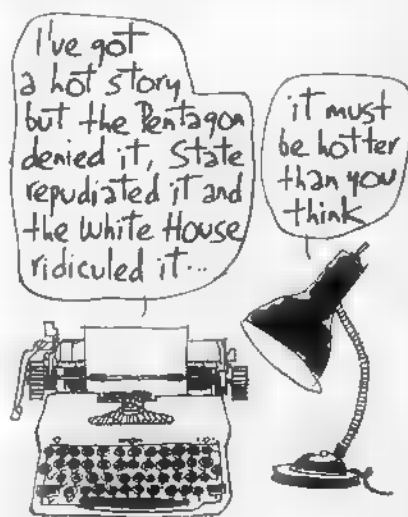 I've got
a hot story
but the Pentagon
denied it, State
repudiated it and
the White House
ridiculed it...
it must
be hotter
than you
think